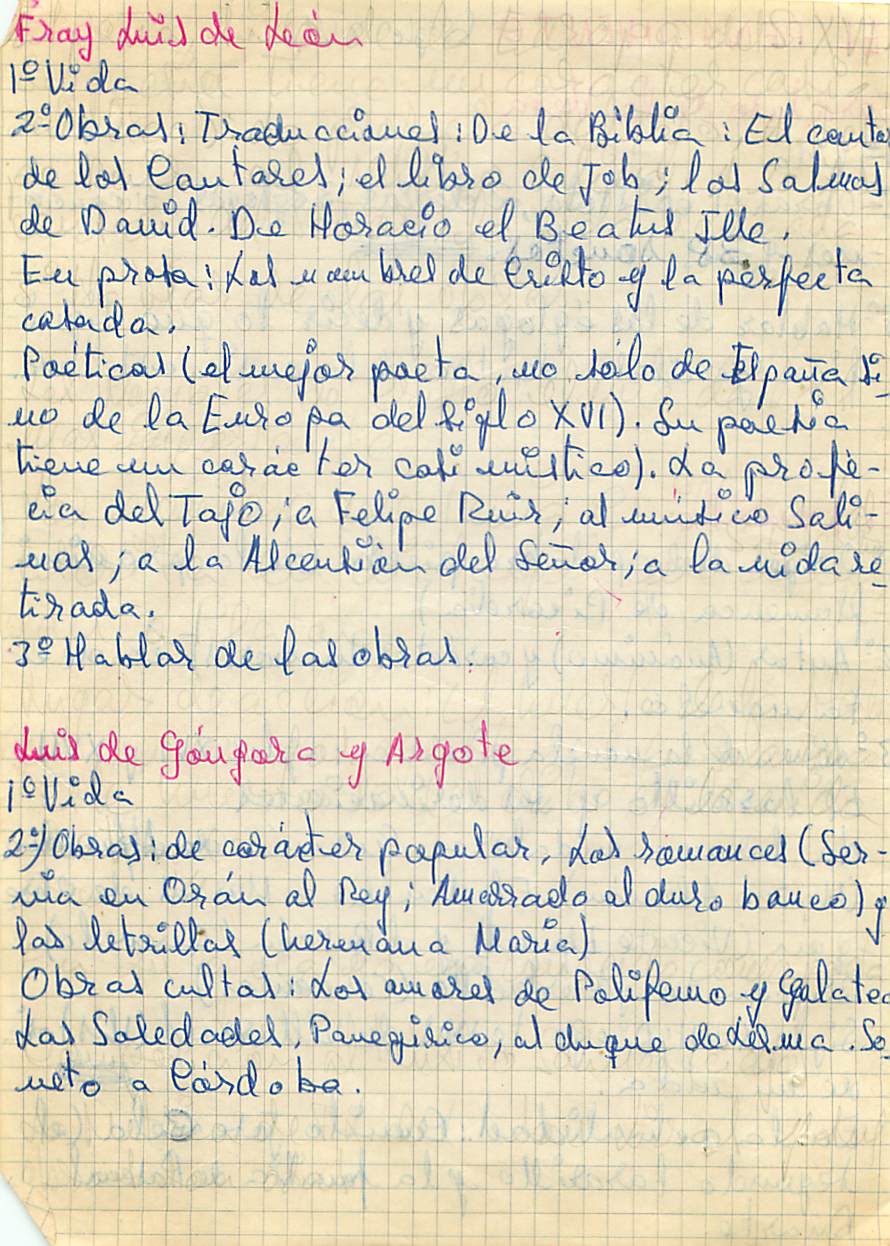 Fray Luis de León
1º Vida
2º Obras: Traducciones: De la Biblia: El cantar
de los Cantares; el libro de Job; los Salmos
de David. De Horacio el Beatus Ille.
En prosa: Los nombres de Cristo y la perfecta
casada.
Poéticas (el mejor poeta, no sólo de España si-
no de la Europa del siglo XVI). Su poesia
tiene un carácter casi místico). La profe-
cia del Tajo; a Felipe Ruiz; al músico Sali-
nas; a la Ascensión del Señor; a la vida re-
tirada.
3º Hablar de las obras.
Luis de Góngora y Argote
1º Vida
2º) Obras: de carácter popular, Los romances (Ser-
via en Orán al Rey; Amarrado al duro banco) y
las letrillas (hermana Maria)
Obras cultas: Los amores de Polifemo y Galatea
Las Soledades, Panegirico, al duque de Lerma. So-
neto a Córdoba.